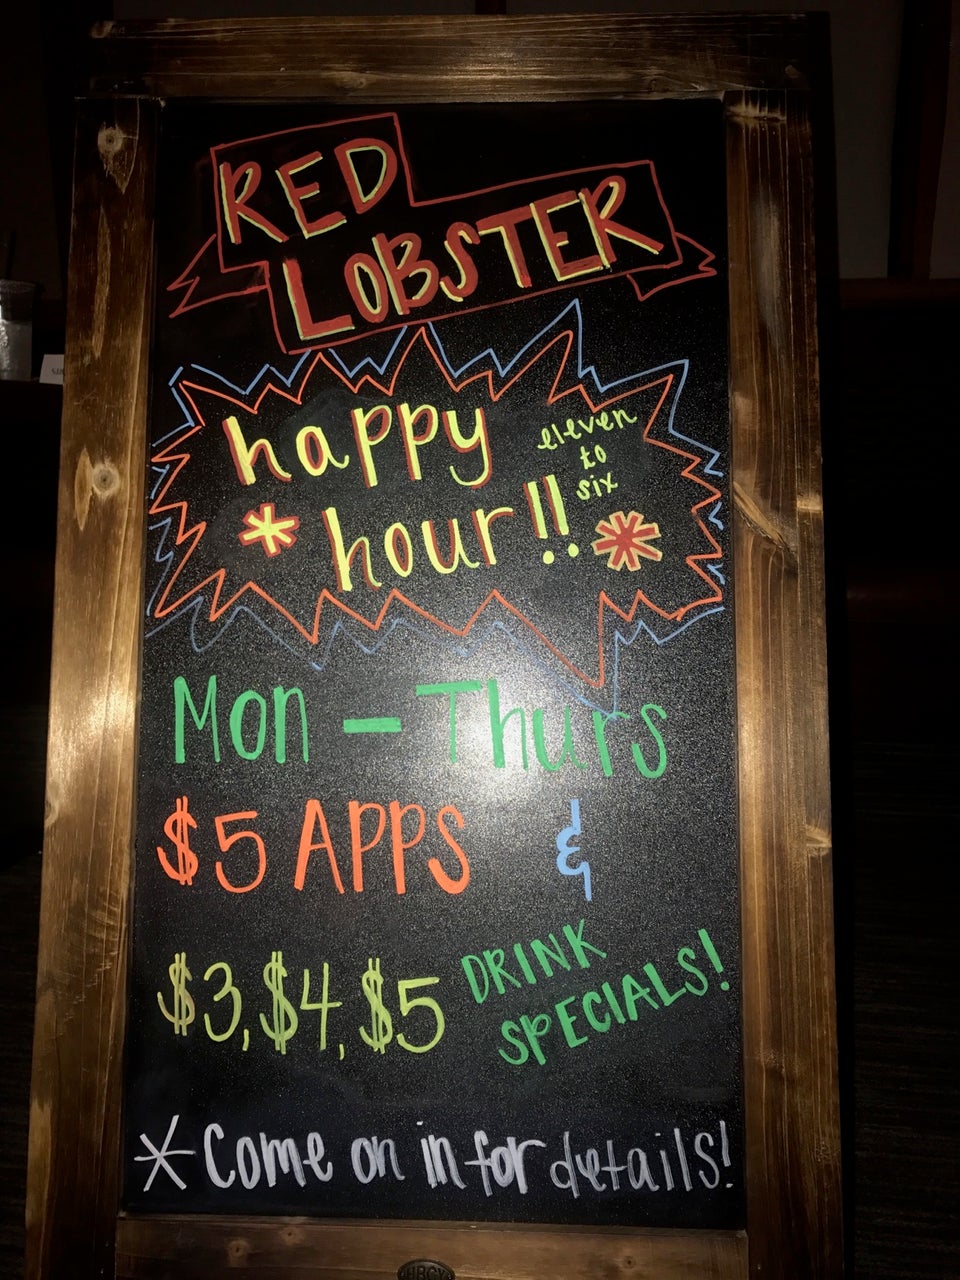 RED
LOBSTER
happy
eleven
to
six
* hour!! *
Mon - Thurs
$5 APPS &
$3, $4, $5 DRINK
SPECIALS!
* Come on in for details!